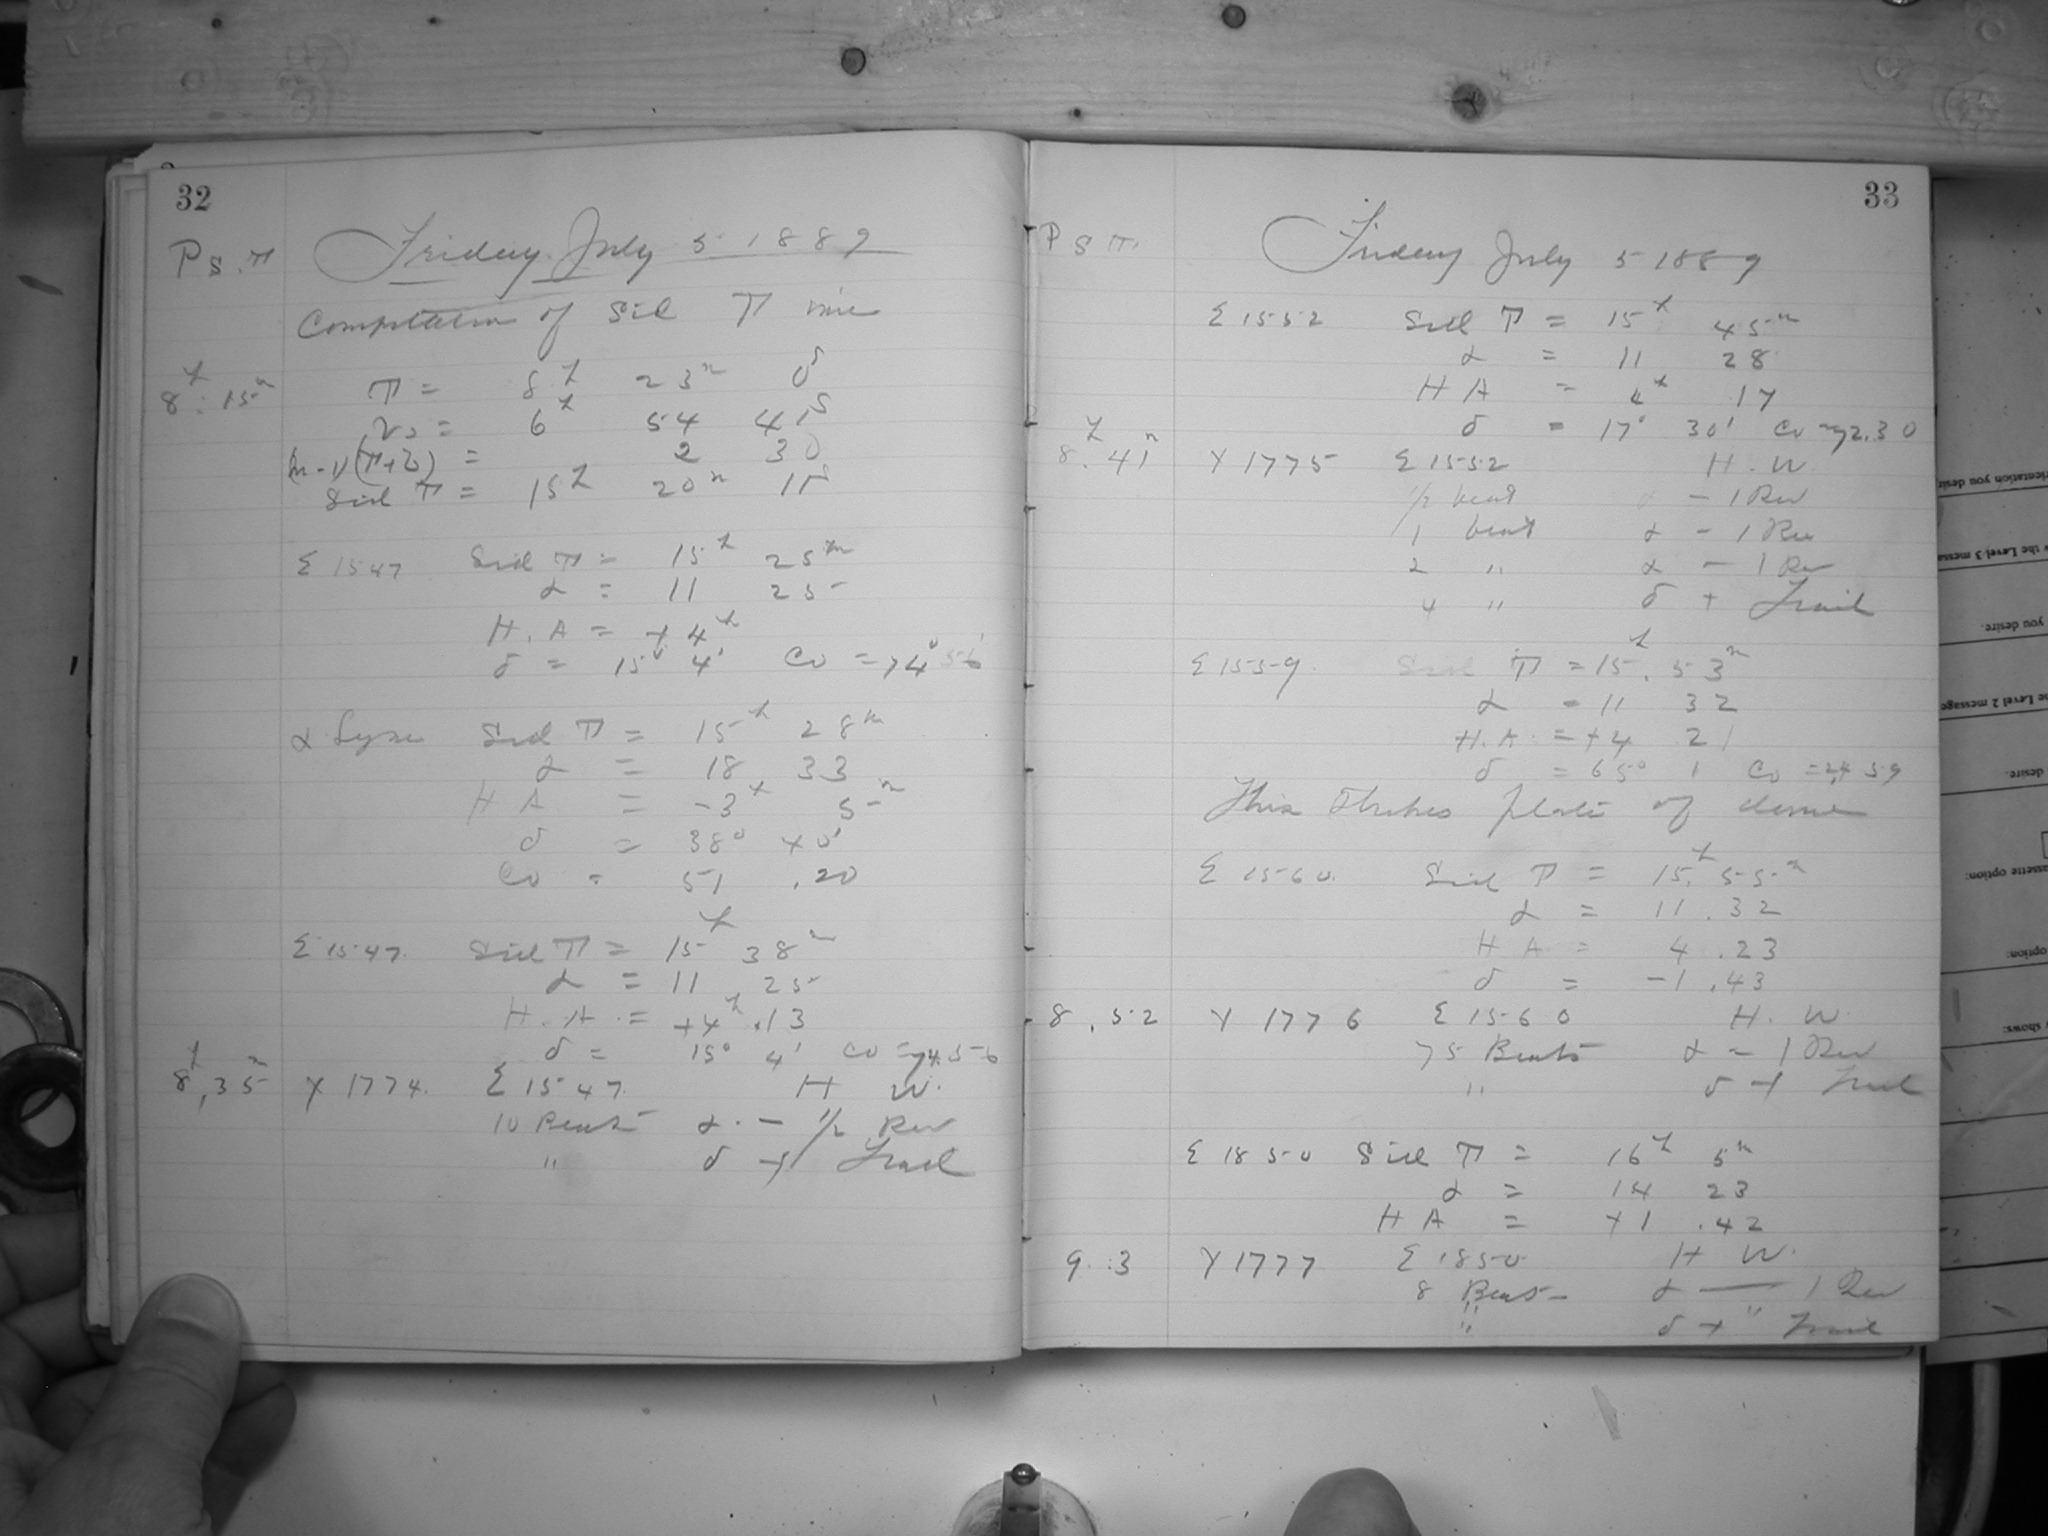 32
P S. T Friday July 5 1889
Computation of Sid Time
8h : 15m T = 8h 23m 0s
V2 = 6h 54 41s
(m-1)(T+L) = 2 30
Sid T = 15h 20m 11s
Σ 1547 Sid T = 15h 25m
α = 11 25
H. A = +4h
δ = 15° 4' Co = 74° 56'
α Lyrae Sid T = 15h 28m
α = 18 33
H A = -3h 5m
δ = 38° 40'
Co = 51 .20
Σ 1547. Sid T = 15h 38m
α = 11 25
H. A. = +4h .13
δ = 15° 4' Co = 74.56
8h,35m Y 1774. Σ 1547. H W.
10 Beats α. - 1/2 Rev
" δ + Trail
33
P S T. Friday July 5 1889
Σ 1552 Sid T = 15h 45m
α = 11 28
H A = 4h 17
δ = 17° 30' Co 72.30
8h. 41m Y 1775 Σ 1552 H. W
1/2 beat α - 1 Rev
1 beat α - 1 Rev
2 " α - 1 Rev
4 " δ + Trail
Σ 1559. Sid T = 15h. 53m
α = 11 32
H. A. = +4 21
δ = 65° 1 Co = 24 59
This strikes plate of dome
Σ 1560. Sid T = 15h. 55m
α = 11 . 32
H A = 4 . 23
δ = -1 .43
8 . 52 Y 1776 Σ 1560 H. W.
75 Beats α - 1 Rev
" δ + Trail
Σ 1850 Sid T = 16h 5m
α = 14 23
H A = +1 .42
9 : 3 Y 1777 Σ 1850 H W.
8 Beats α — 1 Rev
" δ + " Trail